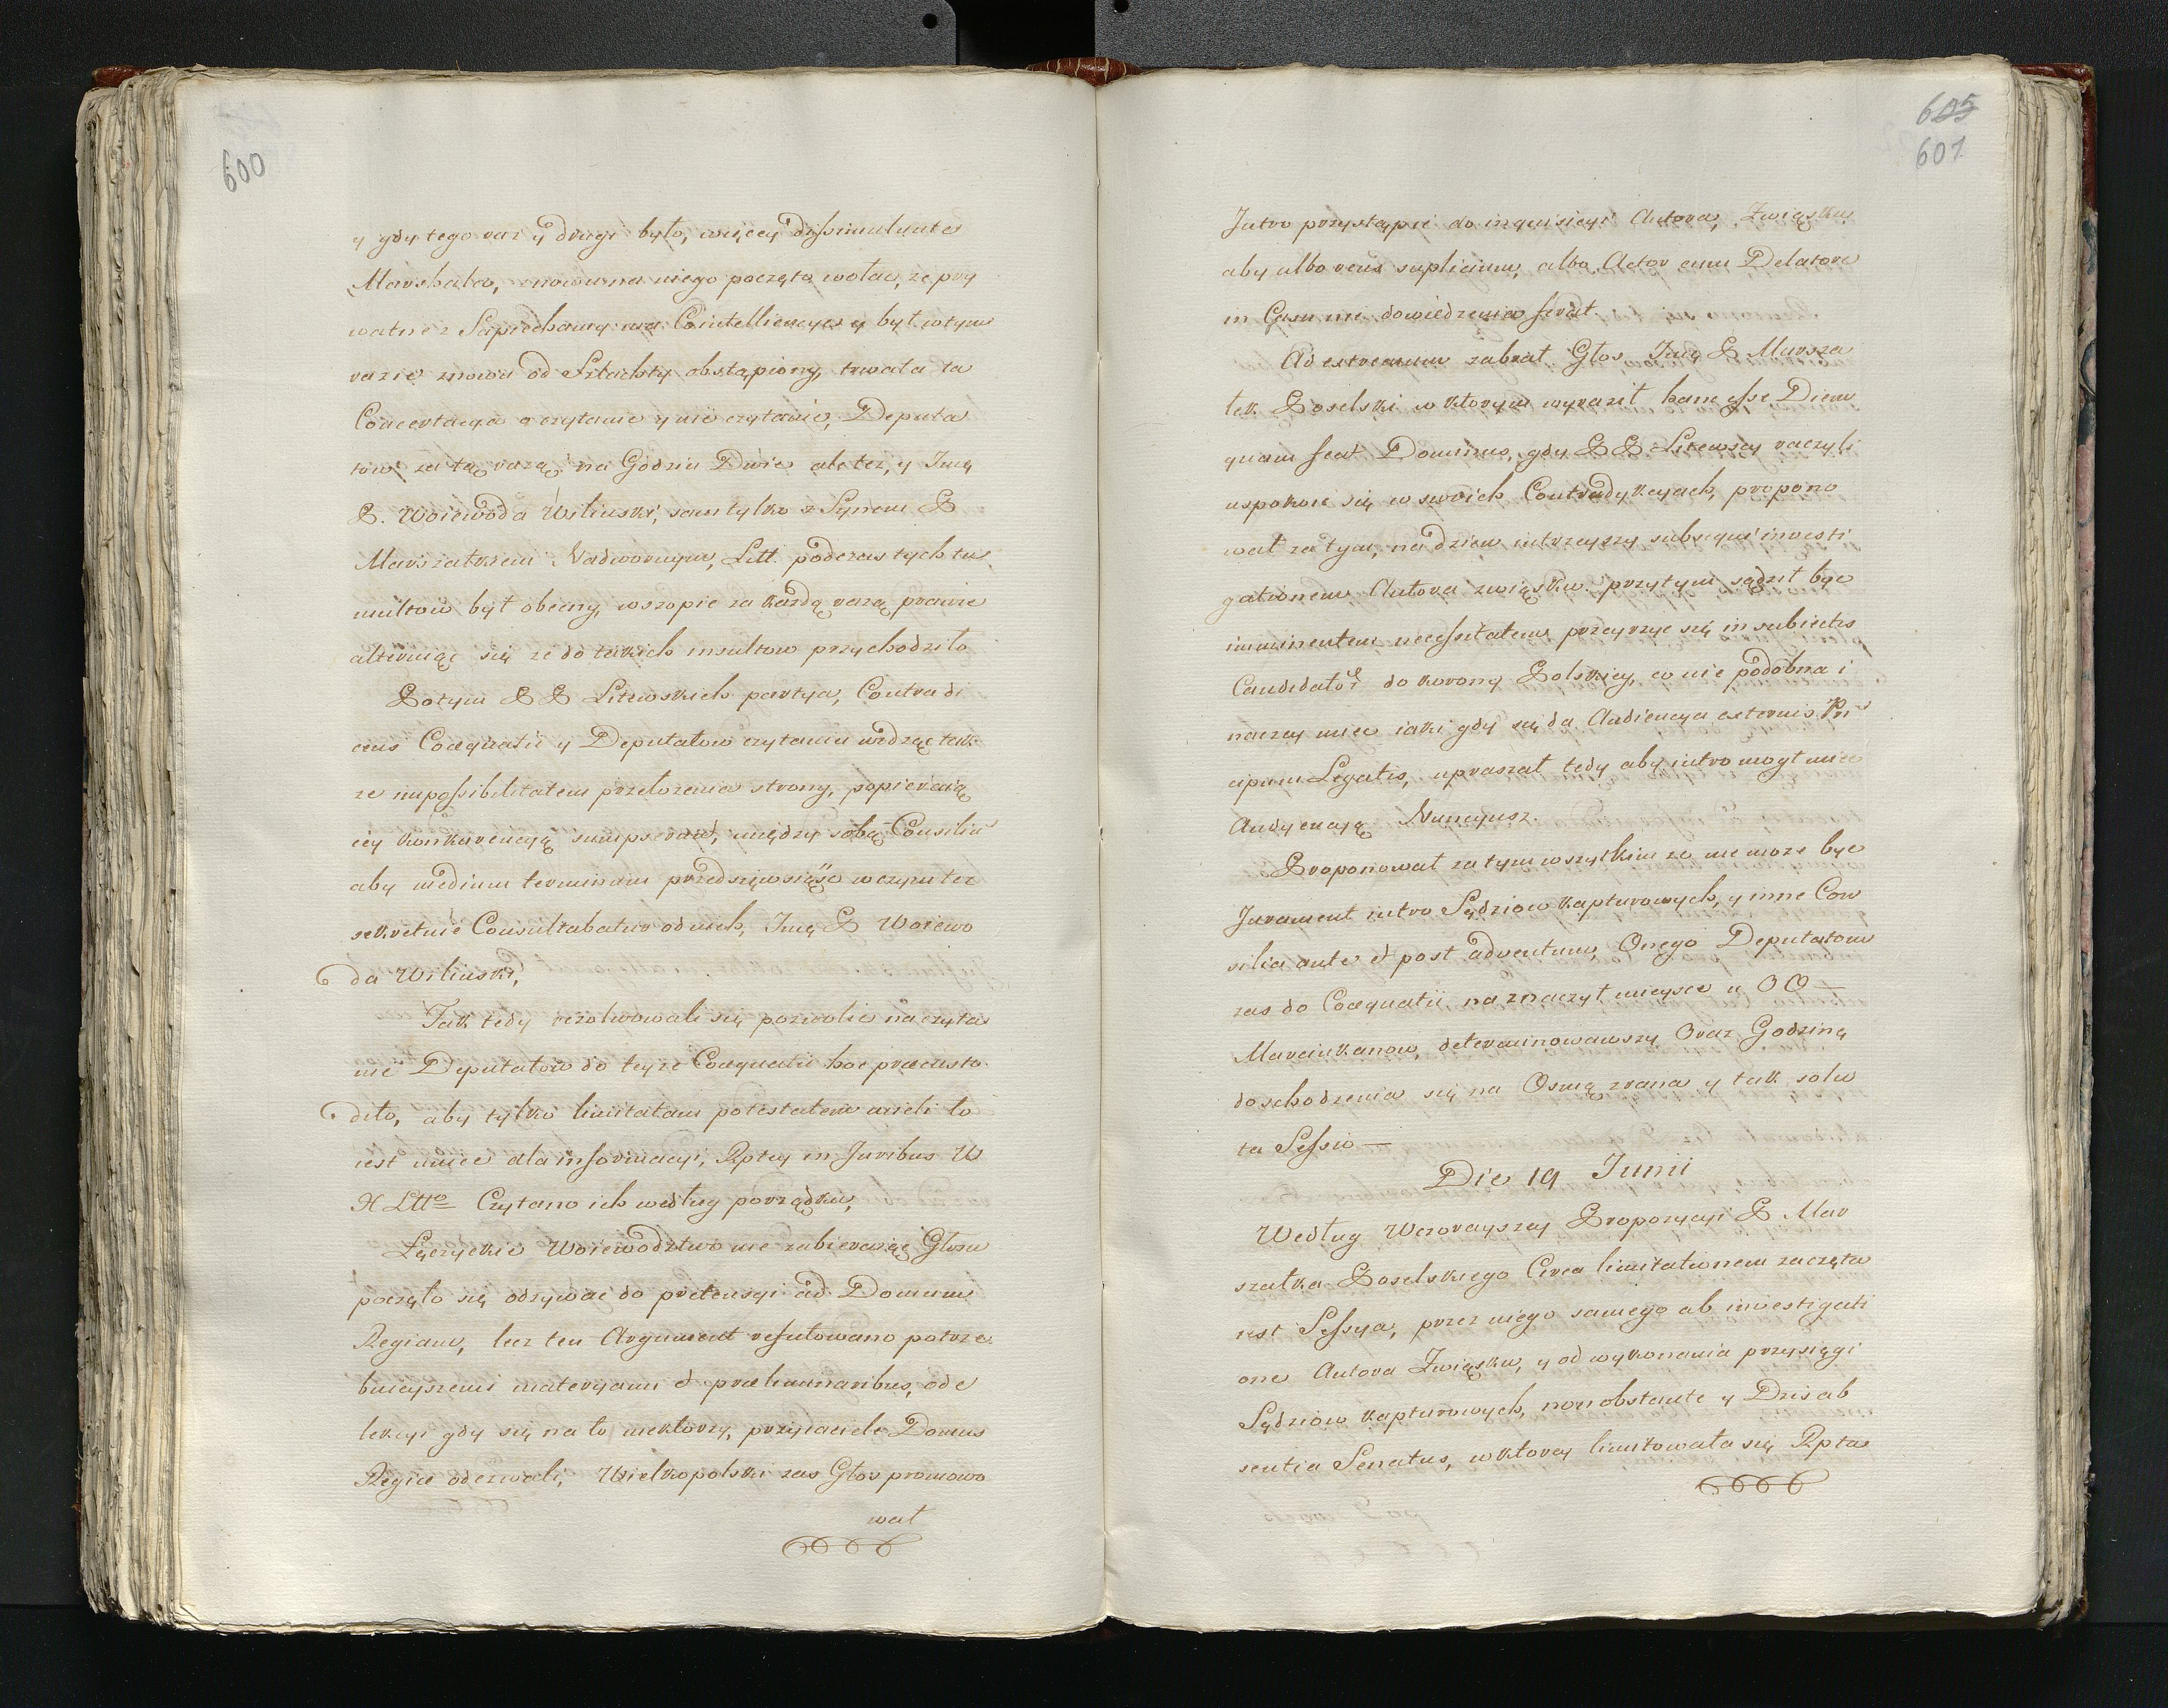 600
y gdy tego raz y drugi było, więcey dissimulante
Marshalco, znowu na niego poczęto wołac, że pry
watnie z Sapiechamy ma Cointelliencye y był w tym
razie znowu od Szlachty obstąpiony, trwała ta
Concertacya o czytanie y nie czytanie, Deputa
tow za tą razą na Godzin Dwie ale też, y Jmę
P. Woiewoda Wilinski, sam tylko z Synem P
Marszałkiem Nadwornym, Litt. podczas tych tu
multow był obecny, w szopie za każdą razą prawie
alteruiąc się ze do takich insultow przychodziło
Potym P P Litewskich partya, Contradi
cens Coaequatii y Deputatow czytaniu widząc tak
ze impossibilitatem przełozenia strony, popieraią
cey konkurencyą sumpserant, między sobą Consiliu
aby medium terminum przedsięwsiąśc w czym też
sekretnie Consultabatur od nich, Jmę P Woiewo
da Wilinski,
Tak tedy rezolwowali się pozwolic na czyta
nie Deputatow do teyże Coaequatii hoc praecusto
dito, aby tylko limitatam potestatem mieli to
iest miec dla informacyi, Rptey in Juribus W
X Ltto Czytano ich według porządku,
Łęczyckie Woiewodztwo nie zabieraiąc Głosu
poczęło się odzywac do pretensyi ad Domum
Regiam, lecz ten Argument refutowano potrze
bnieyszemi materyami et praeliminaribus, od e
lekcyi gdy się na to niektorzy, przyiaciele Domus
Regiae oderwali, Wielkopolski zas Głos promowo
wał
605
601
Jutro przystąpic do inquisicyi Autora, Związku
aby albo reus suplicium, albo Actor cum Delatore
in Casu nie dowiedzenia ferat.
Ad extremum zabrał Głos Jmę P Marsza
łek Poselski w ktorym wyraził hanc esse Diem
quam fecit Dominus, gdy P P Litewscy raczyli
uspokoic się w swoich Contradykcyach, propono
wał za tym, na dzien iutrzeyszy subsequi investi
gationem Autora związku przytym sądził byc
imminentem necessitatem przeyrzec się in subiectis
Candidator do korony Polskiey, co nie podobna i
naczey miec iak gdy się da Audiencya externis Prin
cipum Legatis, upraszał tedy aby iutro mogł miec
Audyencyą Nuncyusz.
Proponował za tym wszytkim ze nie może byc
Jurament iutro Sędziow kapturowych, y inne Con
silia ante et post adventum, Onego Deputatom
zas do Coaequatii naznaczył mieysce u OO
Marcinkanow, determinowawszy Oraz Godzinę
do schodzenia się na Osmą zrana y tak solu
ta Sessio
Die 19 Junii
Według Wczorayszey Propozycyi P Mar
szałka Poselskiego Circa limitationem zaczęta
iest Sessya, przez niego samego ab investigati
one Autora Związku, y od wykonania przysięgi
Sędziow kapturowych, non obstante y Dzis ab
sentia Senatus, w ktorey limitowała się Rpta